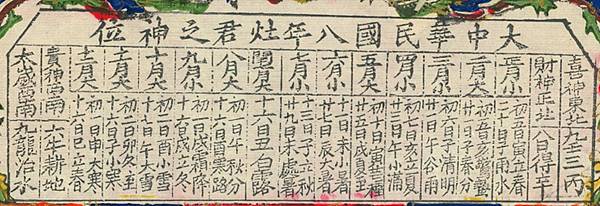 大中華民國八年灶君之神位
喜神東北
財神正北 八日得辛
正月小 初五日寅立春 二十日子雨水
二月大 初五日亥驚蟄 二十日子春分
三月小 初六日子清明 廿一日午谷雨
四月小 初七日亥立夏 廿三日午小滿
五月大 初十日寅芒種 廿五日戌夏至
六月小 十一日未小暑 廿七日辰大暑
七月小 十三日子立秋 廿九日未處暑
閏月大 十六日丑白露
八月大 初一日午秋分 十六日酉寒露
九月小 初一日戌霜降 十六日戌立冬
十月大 初二日酉小雪 十七日午大雪
十一月大 初二日卯冬至 十六日子小寒
十二月大 初一日申大寒 十六日巳立春
貴神西南 六牛耕地
太歲西南 九龍治水